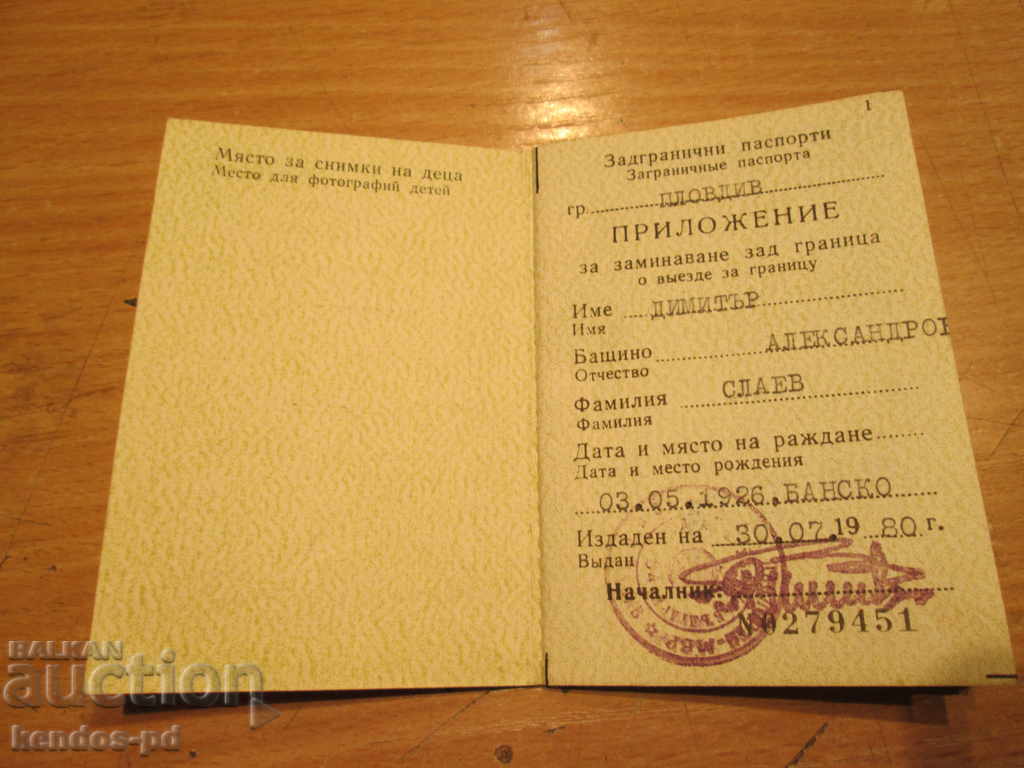 Място за снимки на деца
Место для фотографий детей
1
Задгранични паспорти
Заграничные паспорта
гр. ПЛОВДИВ
ПРИЛОЖЕНИЕ
за заминаване зад граница
о выезде за границу
Име ДИМИТЪР
Имя
Бащино АЛЕКСАНДРОВ
Отчество
Фамилия СЛАЕВ
Фамилия
Дата и място на раждане
Дата и место рождения
03.05.1926.БАНСКО
Издаден на 30.07.1980 г.
Выдан
Началник:
N0279451
МВР
BALKAN
auction
kendos-pd